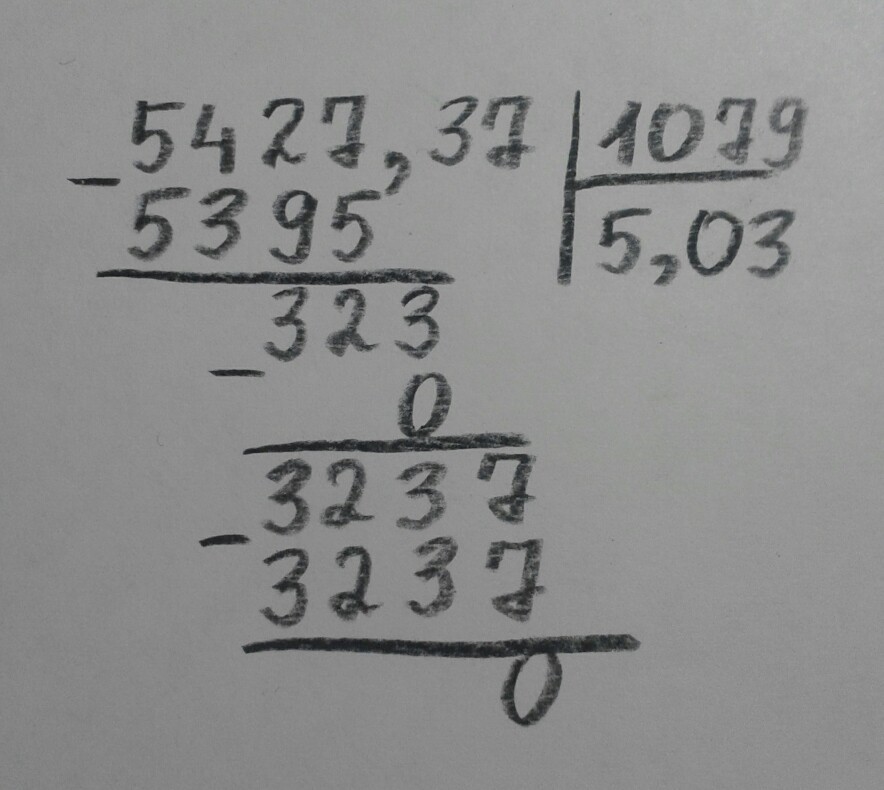 5427,37 1079
- 5395 5,03
323
- 0
3237
- 3237
0